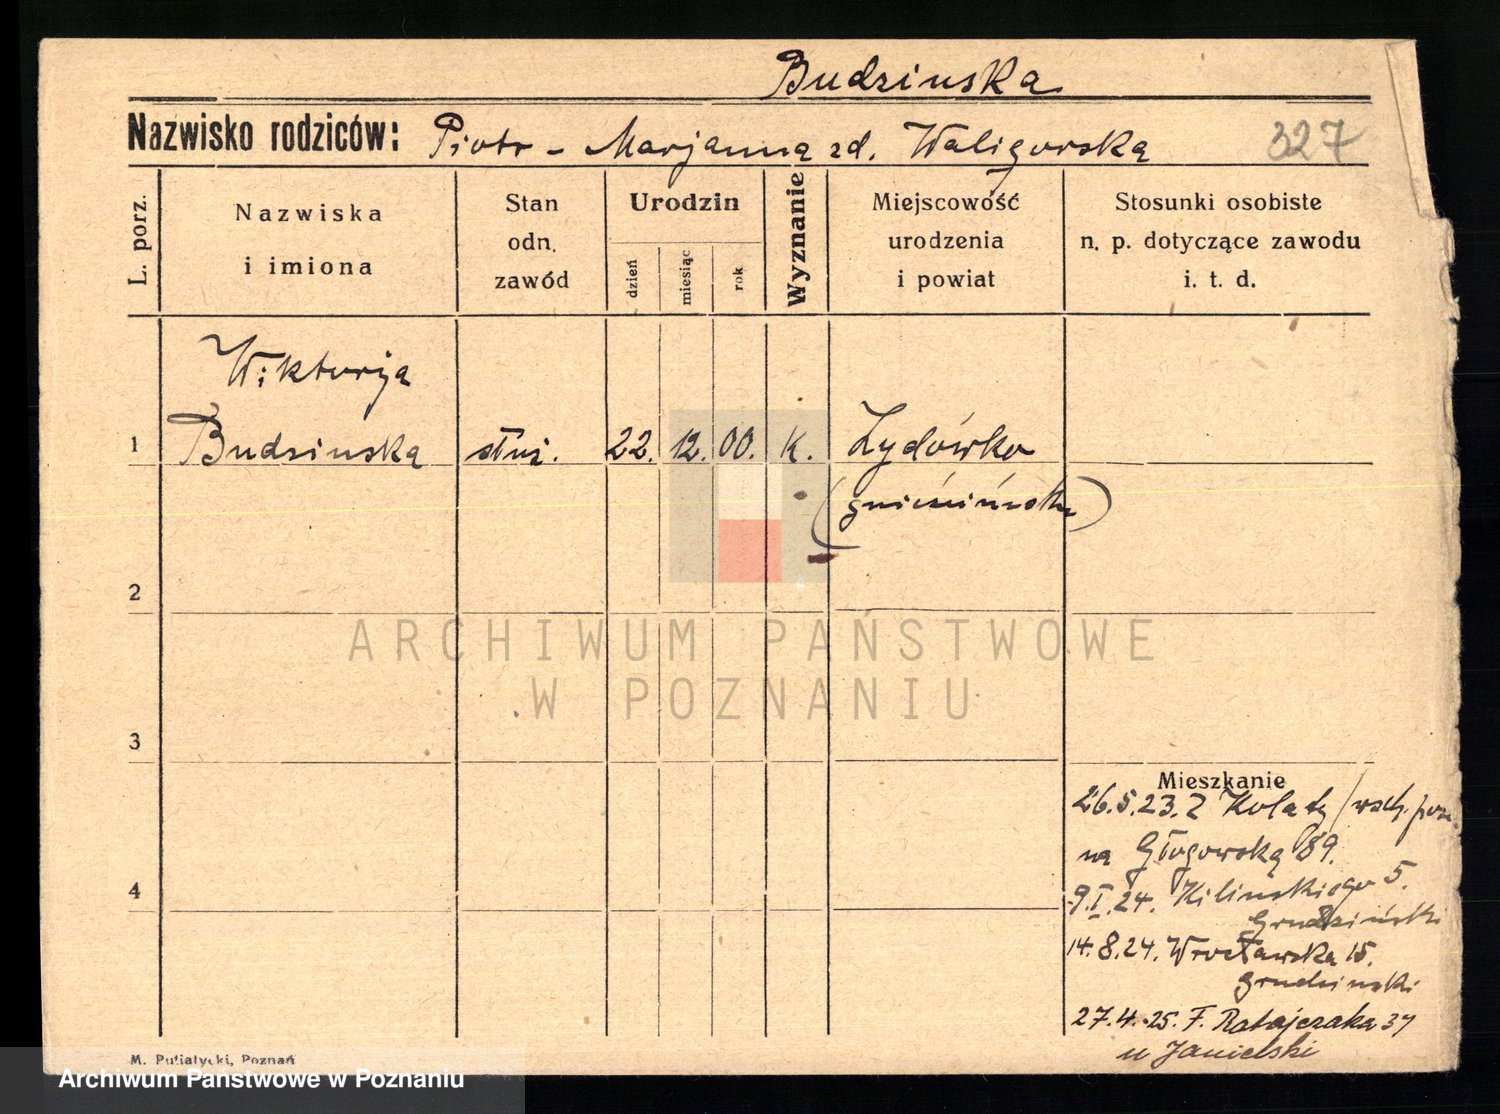 Budzinska
Nazwisko rodziców: Piotr - Marjanna zd. Waligorska 327
L. porz.
Nazwiska i imiona
Stan odn. zawód
Urodzin
dzień
miesiąc
rok
Wyznanie
Miejscowość urodzenia i powiat
Stosunki osobiste n. p. dotyczące zawodu i. t. d.
Wiktorja
1 Budzinska służ. 22. 12. 00. K. Żydówko
(gnieźnińsk)
2
ARCHIWUM PAŃSTWOWE
W POZNANIU
3
Mieszkanie
26.5.23. Z Kolaty / wsch. pozn.
na Głogowską 89.
4
9.I.24. Kilinskiego 5.
Grudziński
14.8.24. Wrocławska 15.
Grudzinski
27.4.25. F. Ratajczaka 37
u Janielski
M. Putiatycki, Poznań
Archiwum Państwowe w Poznaniu